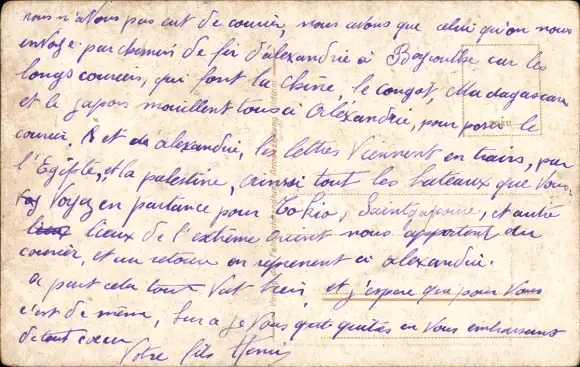 nous n'avons pas eut de courier, nous avons que celui qu'on nous
envoye par chemin de fer d'alexandrie à Bayrouthe car les
longs couriers, qui font la chine, le congot, Madagascar
et le japon mouillent tous à Aléxandrie, pour poser le
courier, et d'aléxandrie, les lettres viennent en trains, par
l'Egipte, et la palestine, ainsi tout les bateaux que vous
voyez en partance pour Tokio, Saintgapoure, et autre
lieux de l'extrème orient nous apportent du
courier, et un retour on reprennent à alexandrie.
à part cela tout vat bien, et j'espère que pour vous
c'est de même, sur ce je vous quitte en vous embrassant
de tout coeur
Votre fils Henri